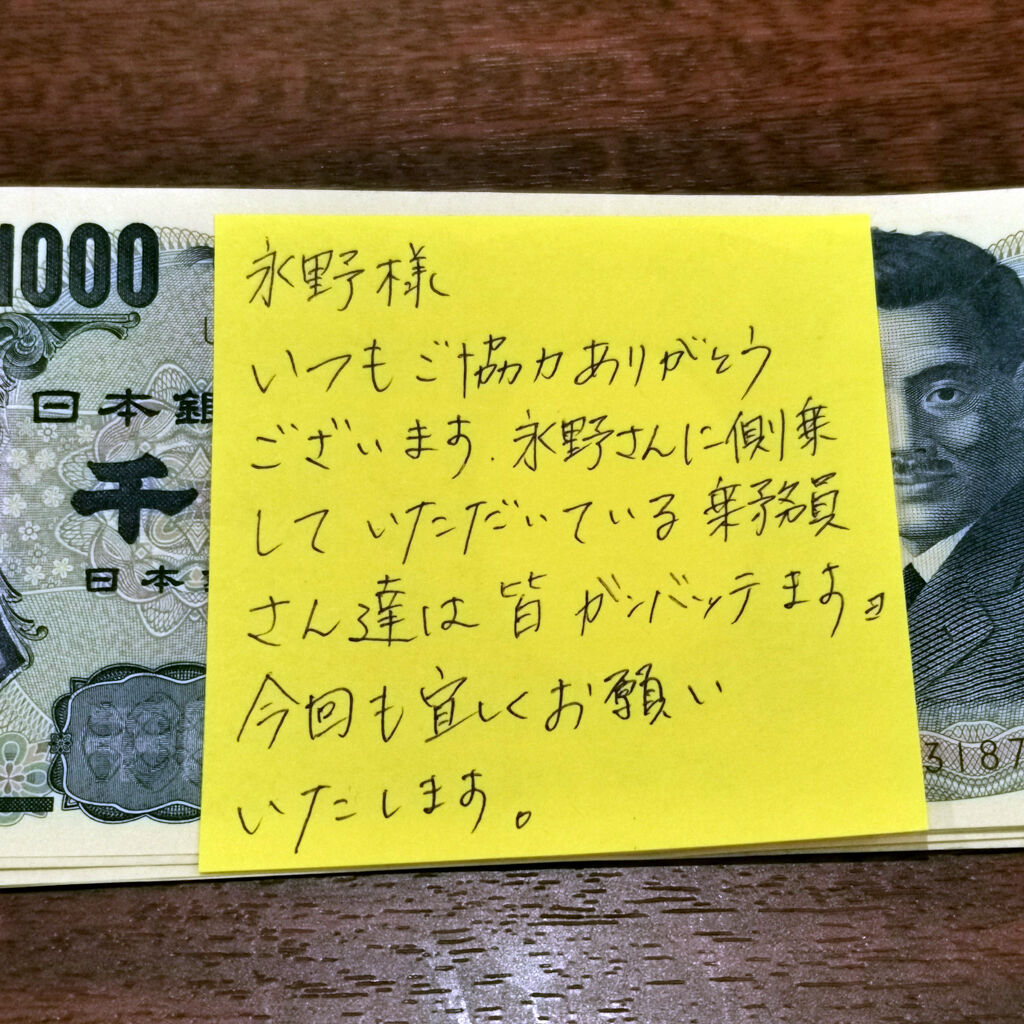 1000
日本銀
千
日本
永野様
いつもご協力ありがとう
ございます.永野さんに側乗
していただいている乗務員
さん達は皆ガンバッテます。
今回も宜しくお願い
いたします。
3187